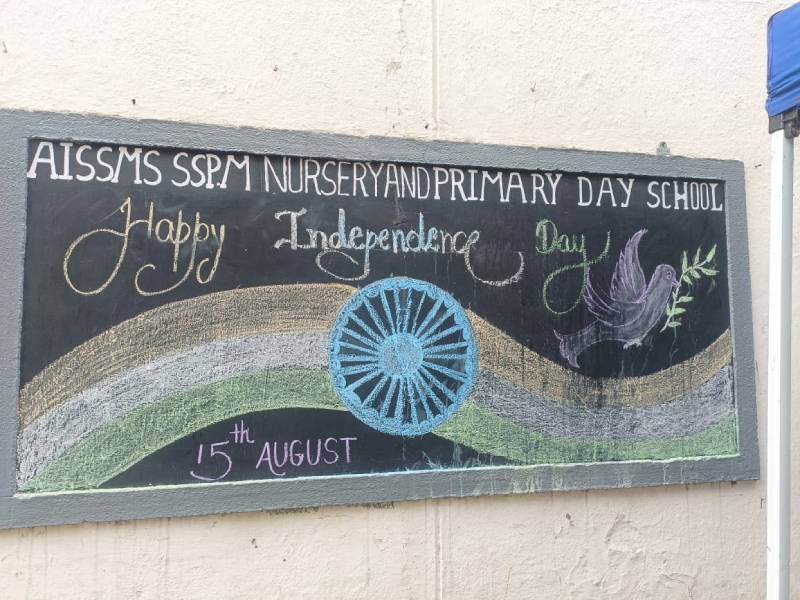 AISSMS SSP.M NURSERY AND PRIMARY DAY SCHOOL
Happy Independence Day
15th AUGUST